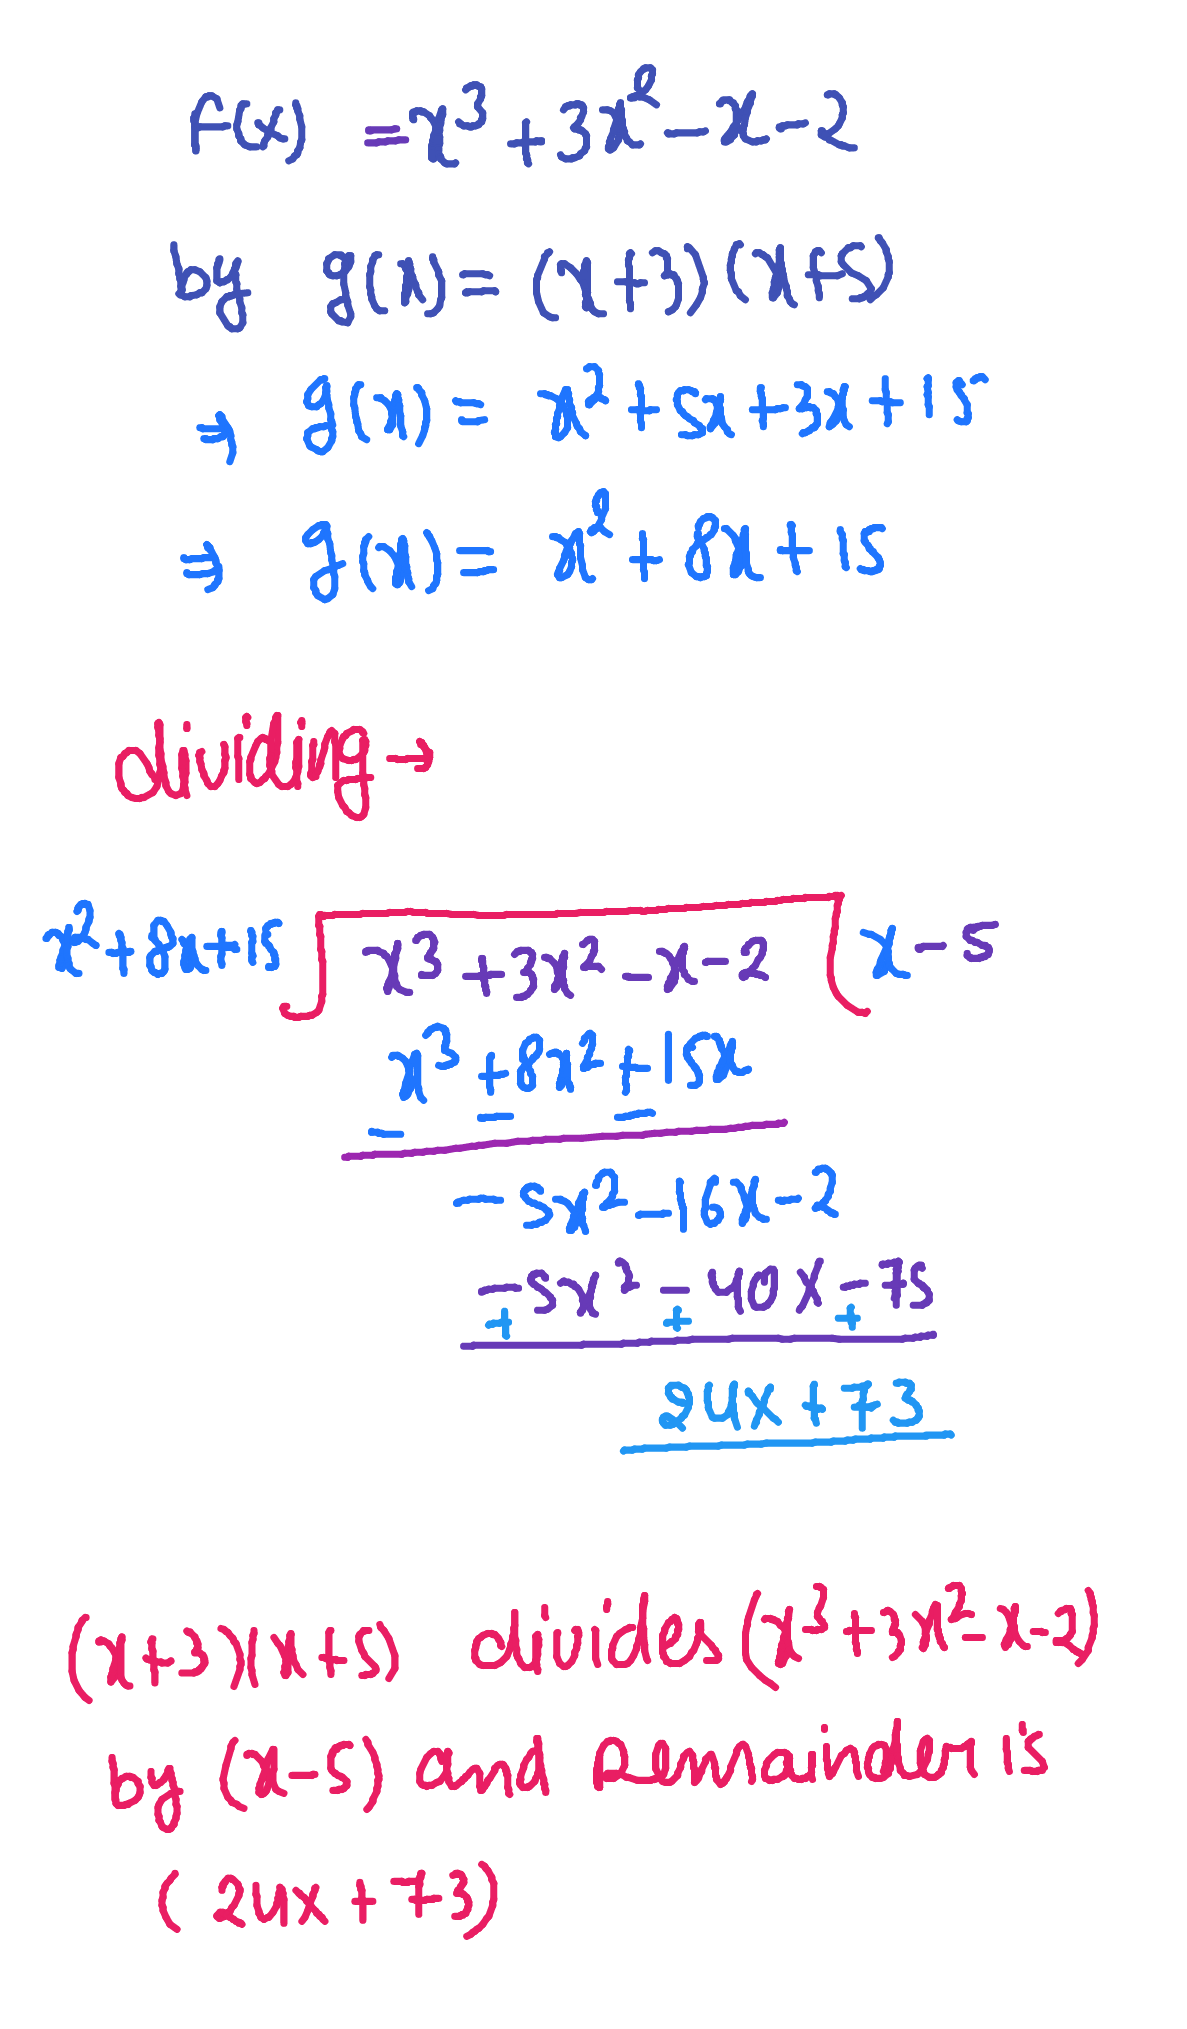 f(x) = x³ + 3x² - x - 2
by g(x) = (x+3) (x+5)
⇒ g(x) = x² + 5x + 3x + 15
⇒ g(x) = x² + 8x + 15
dividing →
x² + 8x + 15 x³ + 3x² - x - 2 x - 5
x³ + 8x² + 15x
- - -
- 5x² - 16x - 2
- 5x² - 40x - 75
+ + +
24x + 73
(x+3)(x+5) divides (x³ + 3x² - x - 2)
by (x-5) and remainder is
(24x + 73)